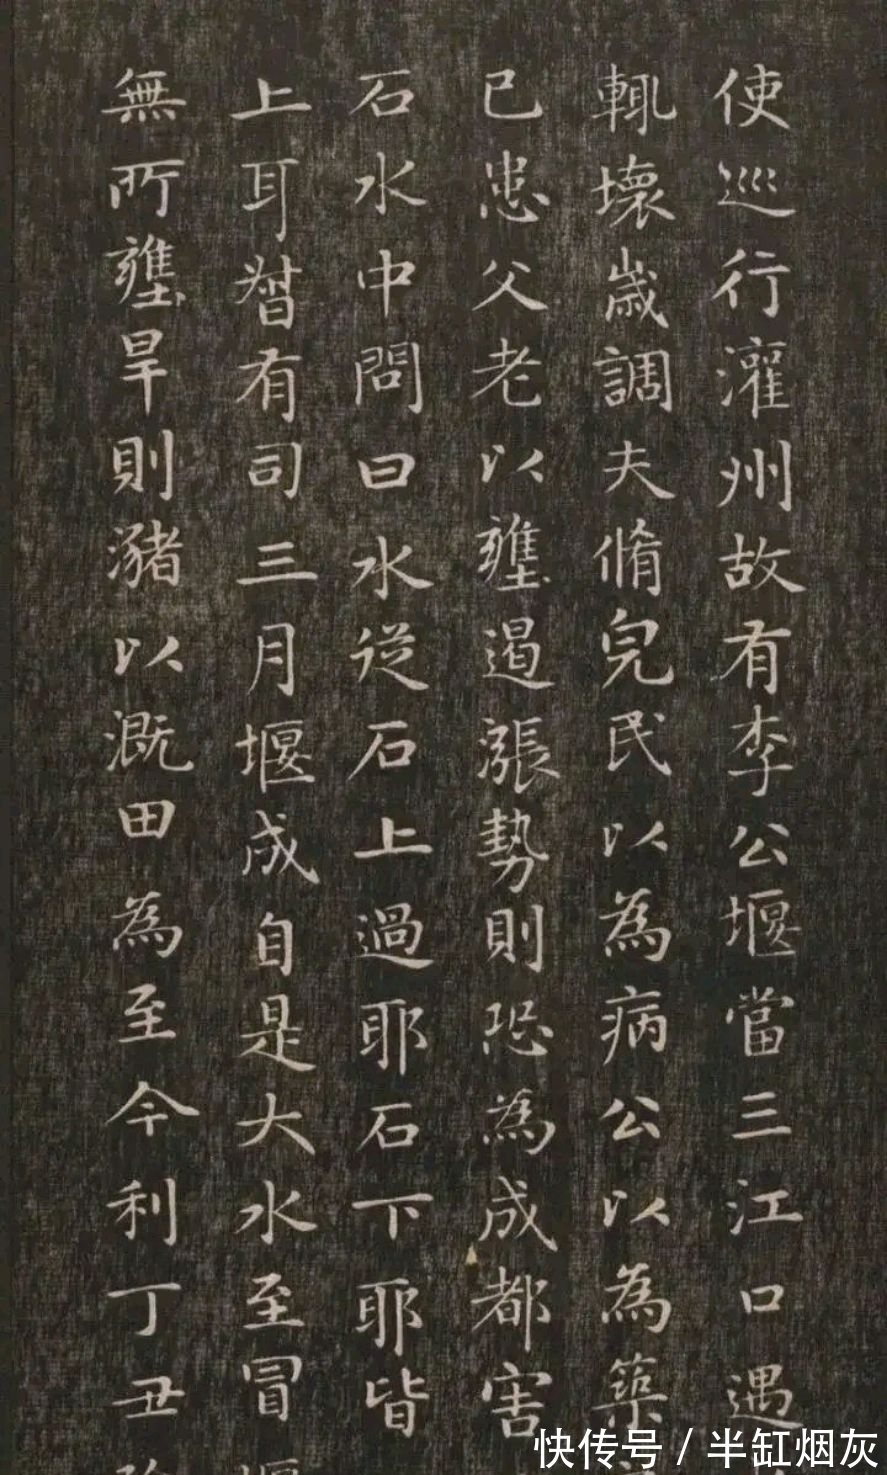 使巡行灌州故有李公堰當三江口遇
輒壞歲調夫脩完民以為病公以為築
已患父老以壅遏漲勢則恐為成都害
石水中問曰水從石上過耶石下耶皆
上耳督有司三月堰成自是大水至冒堰
無所壅旱則瀦以溉田為至今利丁丑
快传号 / 半缸烟灰